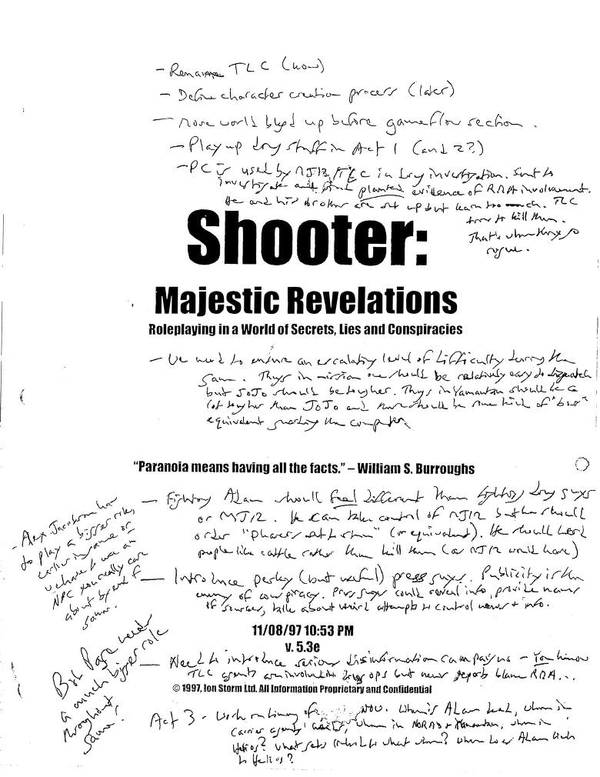 - Rename TLC (now)
- Define character creation process (later)
- More world bkgd up before gameflow section.
- Play up drug stuff in Act 1 (and 2?)
- PC is used by MJ12/TLC in drug investigation. Sent to
investigate and find planted evidence of RRA involvement.
He and his brother are set up but learn too much. TLC
tries to kill them.
That's when they go
rogue.
Shooter:
Majestic Revelations
Roleplaying in a World of Secrets, Lies and Conspiracies
- We need to ensure an escalating level of difficulty during the
game. Thugs in mission one should be relatively easy to dispatch
but JoJo should be tougher. Thugs in Yamantau should be a
lot tougher than JoJo and there should be some kind of "boss"
equivalent guarding the computer.
"Paranoia means having all the facts." – William S. Burroughs
- Fighting Adam should feel different than fighting drug guys
or MJ12. He can take control of MJ12 but he should
order "phasers set to stun" (or equivalent). He should herd
people like cattle rather than kill them (as MJ12 would have)
- Alex Jacobson has
to play a bigger role,
earlier in game or
whatever wow an
NPC you really care
about by end of
game.
- Introduce pesky (but useful) press guys. Publicity is the
enemy of conspiracy. Press guys could reveal info, provide names
of sources, talk about weird attempts to control news + info.
11/08/97 10:53 PM
v. 5.3e
Bob Page needs
a much bigger role
throughout
game!
- Need to introduce serious disinformation campaigns - You know
TLC agents are involved in drug ops but news reports blame RRA...
© 1997, Ion Storm Ltd. All Information Proprietary and Confidential
Act 3 - Work on timing of NOU. When is Adam dead, when in
carrier, when in NORAD + Yamantau, when in
Helios? What gets linked to what when? When does Adam link
to Helios?